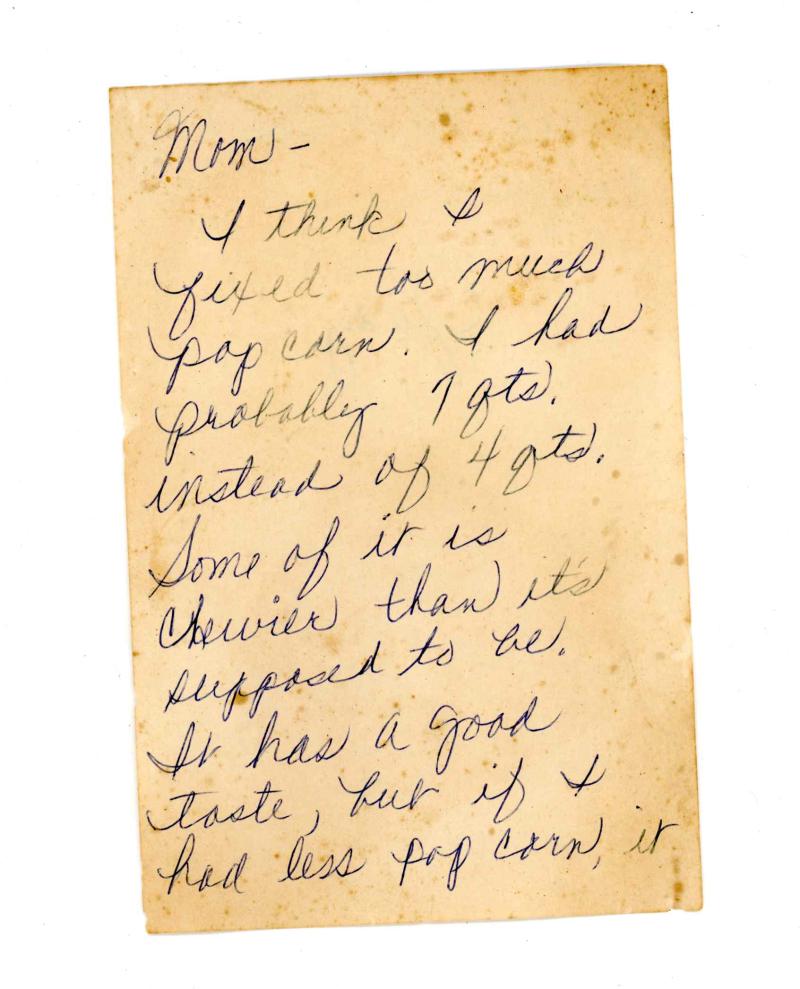 Mom -
I think I
fixed too much
pop corn. I had
probably 7 qts.
instead of 4 qts.
Some of it is
chewier than it's
supposed to be.
It has a good
taste, but if I
had less pop corn, it